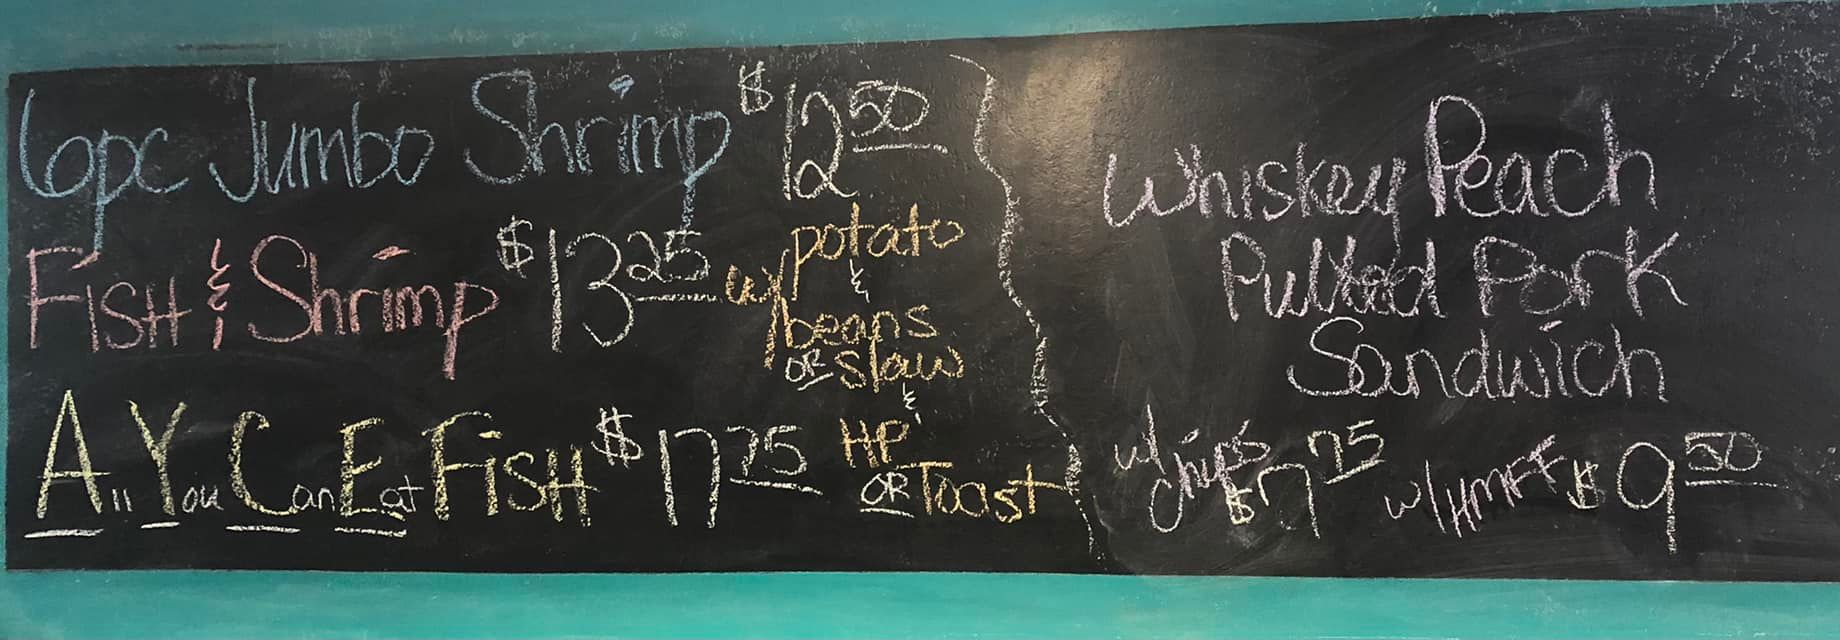 6pc Jumbo Shrimp $12 50
Fish & Shrimp $13 25
All You Can Eat Fish $17 75
w/ potato
&
beans
OR slaw
&
HP
OR Toast
Whiskey Peach
Pulled Pork
Sandwich
w/ chips $7 75 w/HMFF $9 50